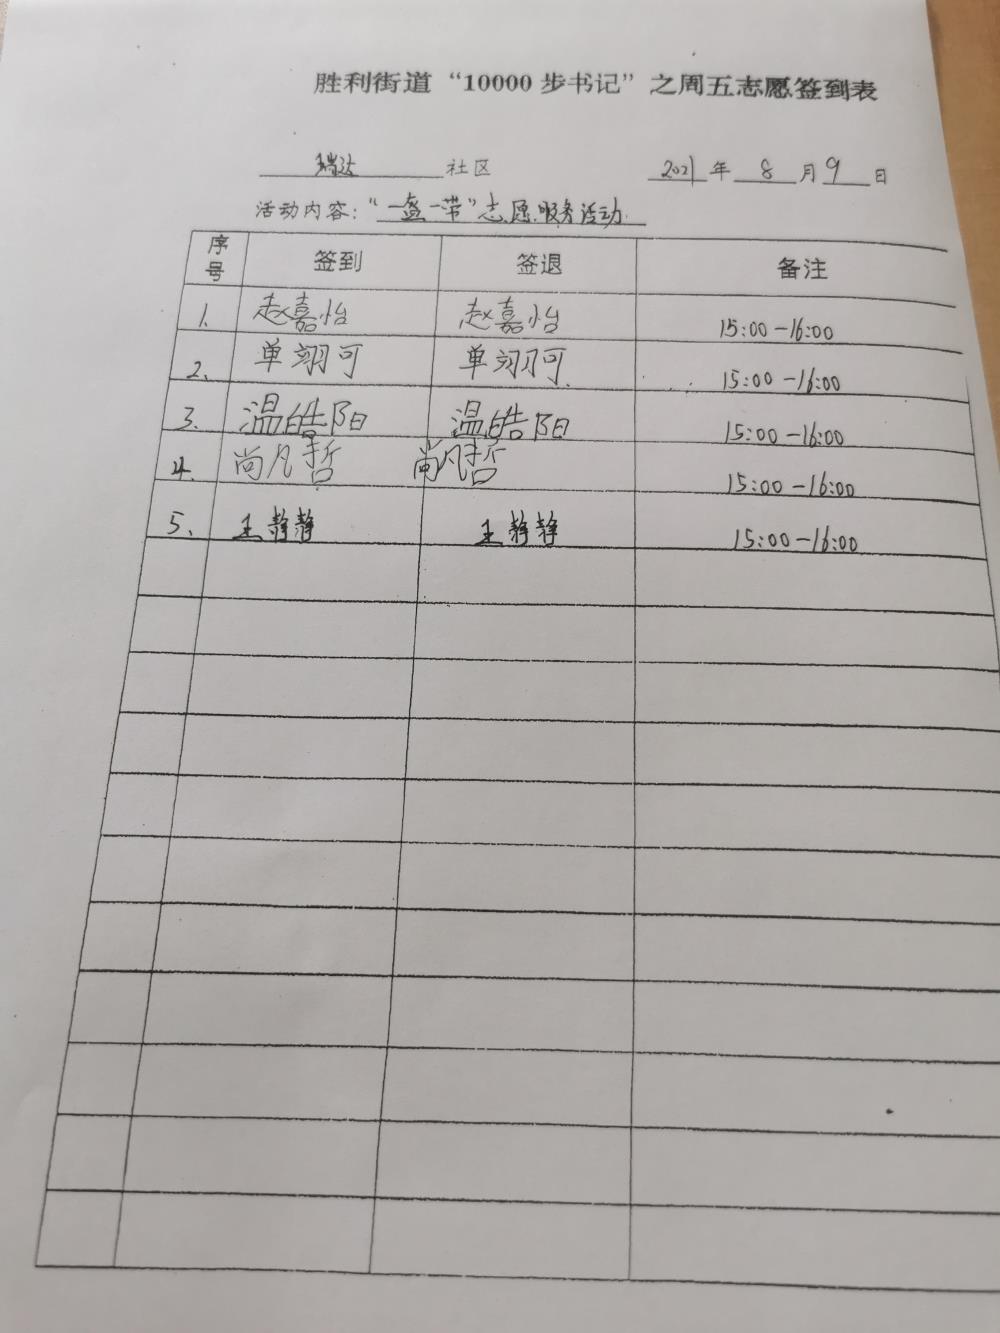 胜利街道“10000步书记”之周五志愿签到表
瑞达社区 2021年8月9日
活动内容：“一盔一带”志愿服务活动
序号 签到 签退 备注
1. 赵嘉怡 赵嘉怡 15:00-16:00
2、 单翊可 单翊可 15:00-16:00
3、 温皓阳 温皓阳 15:00-16:00
4、 尚凡哲 尚凡哲 15:00-16:00
5、 王静静 王静静 15:00-16:00